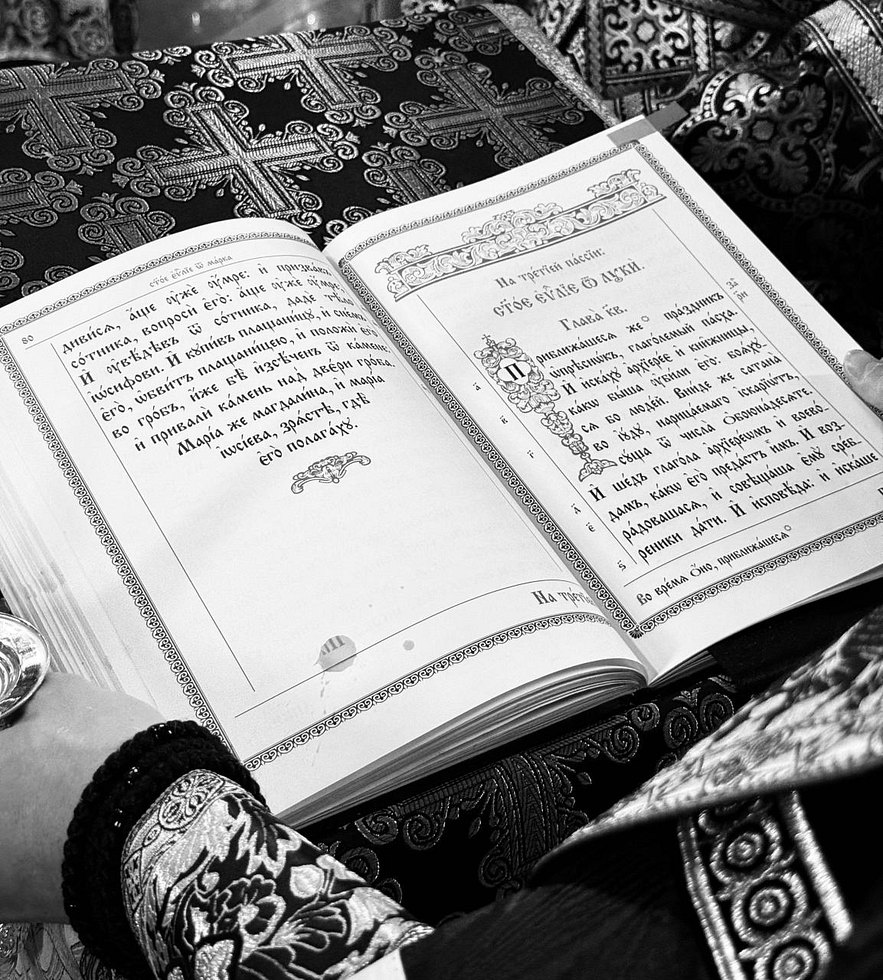 80
ст҃ое еѵ⷏лїе ѿ ма́рка
диви́сѧ, а́ще ᲂу҆жѐ ᲂу҆́мре: и҆ призва́въ
со́тника, вопросѝ є҆го̀: а́ще ᲂу҆жѐ ᲂу҆́мре;
И҆ ᲂу҆вѣ́дѣвъ ѿ со́тника, дадѐ тѣ́ло
і҆ѡ́сифови. И҆ кꙋпи́въ плащани́цꙋ, и҆ сне́мъ
є҆го̀, ѡ҆бви́тъ плащани́цею, и҆ положѝ є҆го̀
во гро́бъ, и҆́же бѣ̀ и҆зсѣ́ченъ ѿ ка́мене:
и҆ привалѝ ка́мень над̾ двє́ри гро́ба.
Марі́а же магдали́на, и҆ марі́а
і҆ѡсі́ева, зрѧ́стѣ, гдѣ̀
є҆го̀ полага́хꙋ.
На тре́тї
На тре́тїей па́ссїи:
ст҃о́е еѵ⷏лїе ѿ лꙋкѝ.
Глава̀ к҃в.
за҃
рн҃
Приближа́шесѧ же пра́здникъ
ѡ҆прѣсно́къ, глаго́лемый па́сха.
а҃
И҆ и҆ска́хꙋ а҆рхїере́є и҆ кни́жницы,
ка́кѡ бы́ша ᲂу҆би́ли є҆го̀: боѧ́хꙋ
в҃
сѧ бо люде́й. Вни́де же сатана̀
во і҆ꙋ́дꙋ нарица́емаго і҆скарїѡ́тъ,
г҃
сꙋ́ща ѿ числа̀ ѻ҆боюна́десѧте.
И҆ ше́дъ глаго́ла а҆рхїере́ѡмъ и҆ воево́
д҃
дамъ, ка́кѡ є҆го̀ преда́стъ и҆̀мъ. И҆ воз
є҃
ра́довашасѧ, и҆ совѣща́ша є҆мꙋ̀ сре́б
ѕ҃
реники да́ти. И҆ и҆сповѣ́да: и҆ и҆ска́ше
Во вре́мѧ ѻ҆́но, приближа́шесѧ